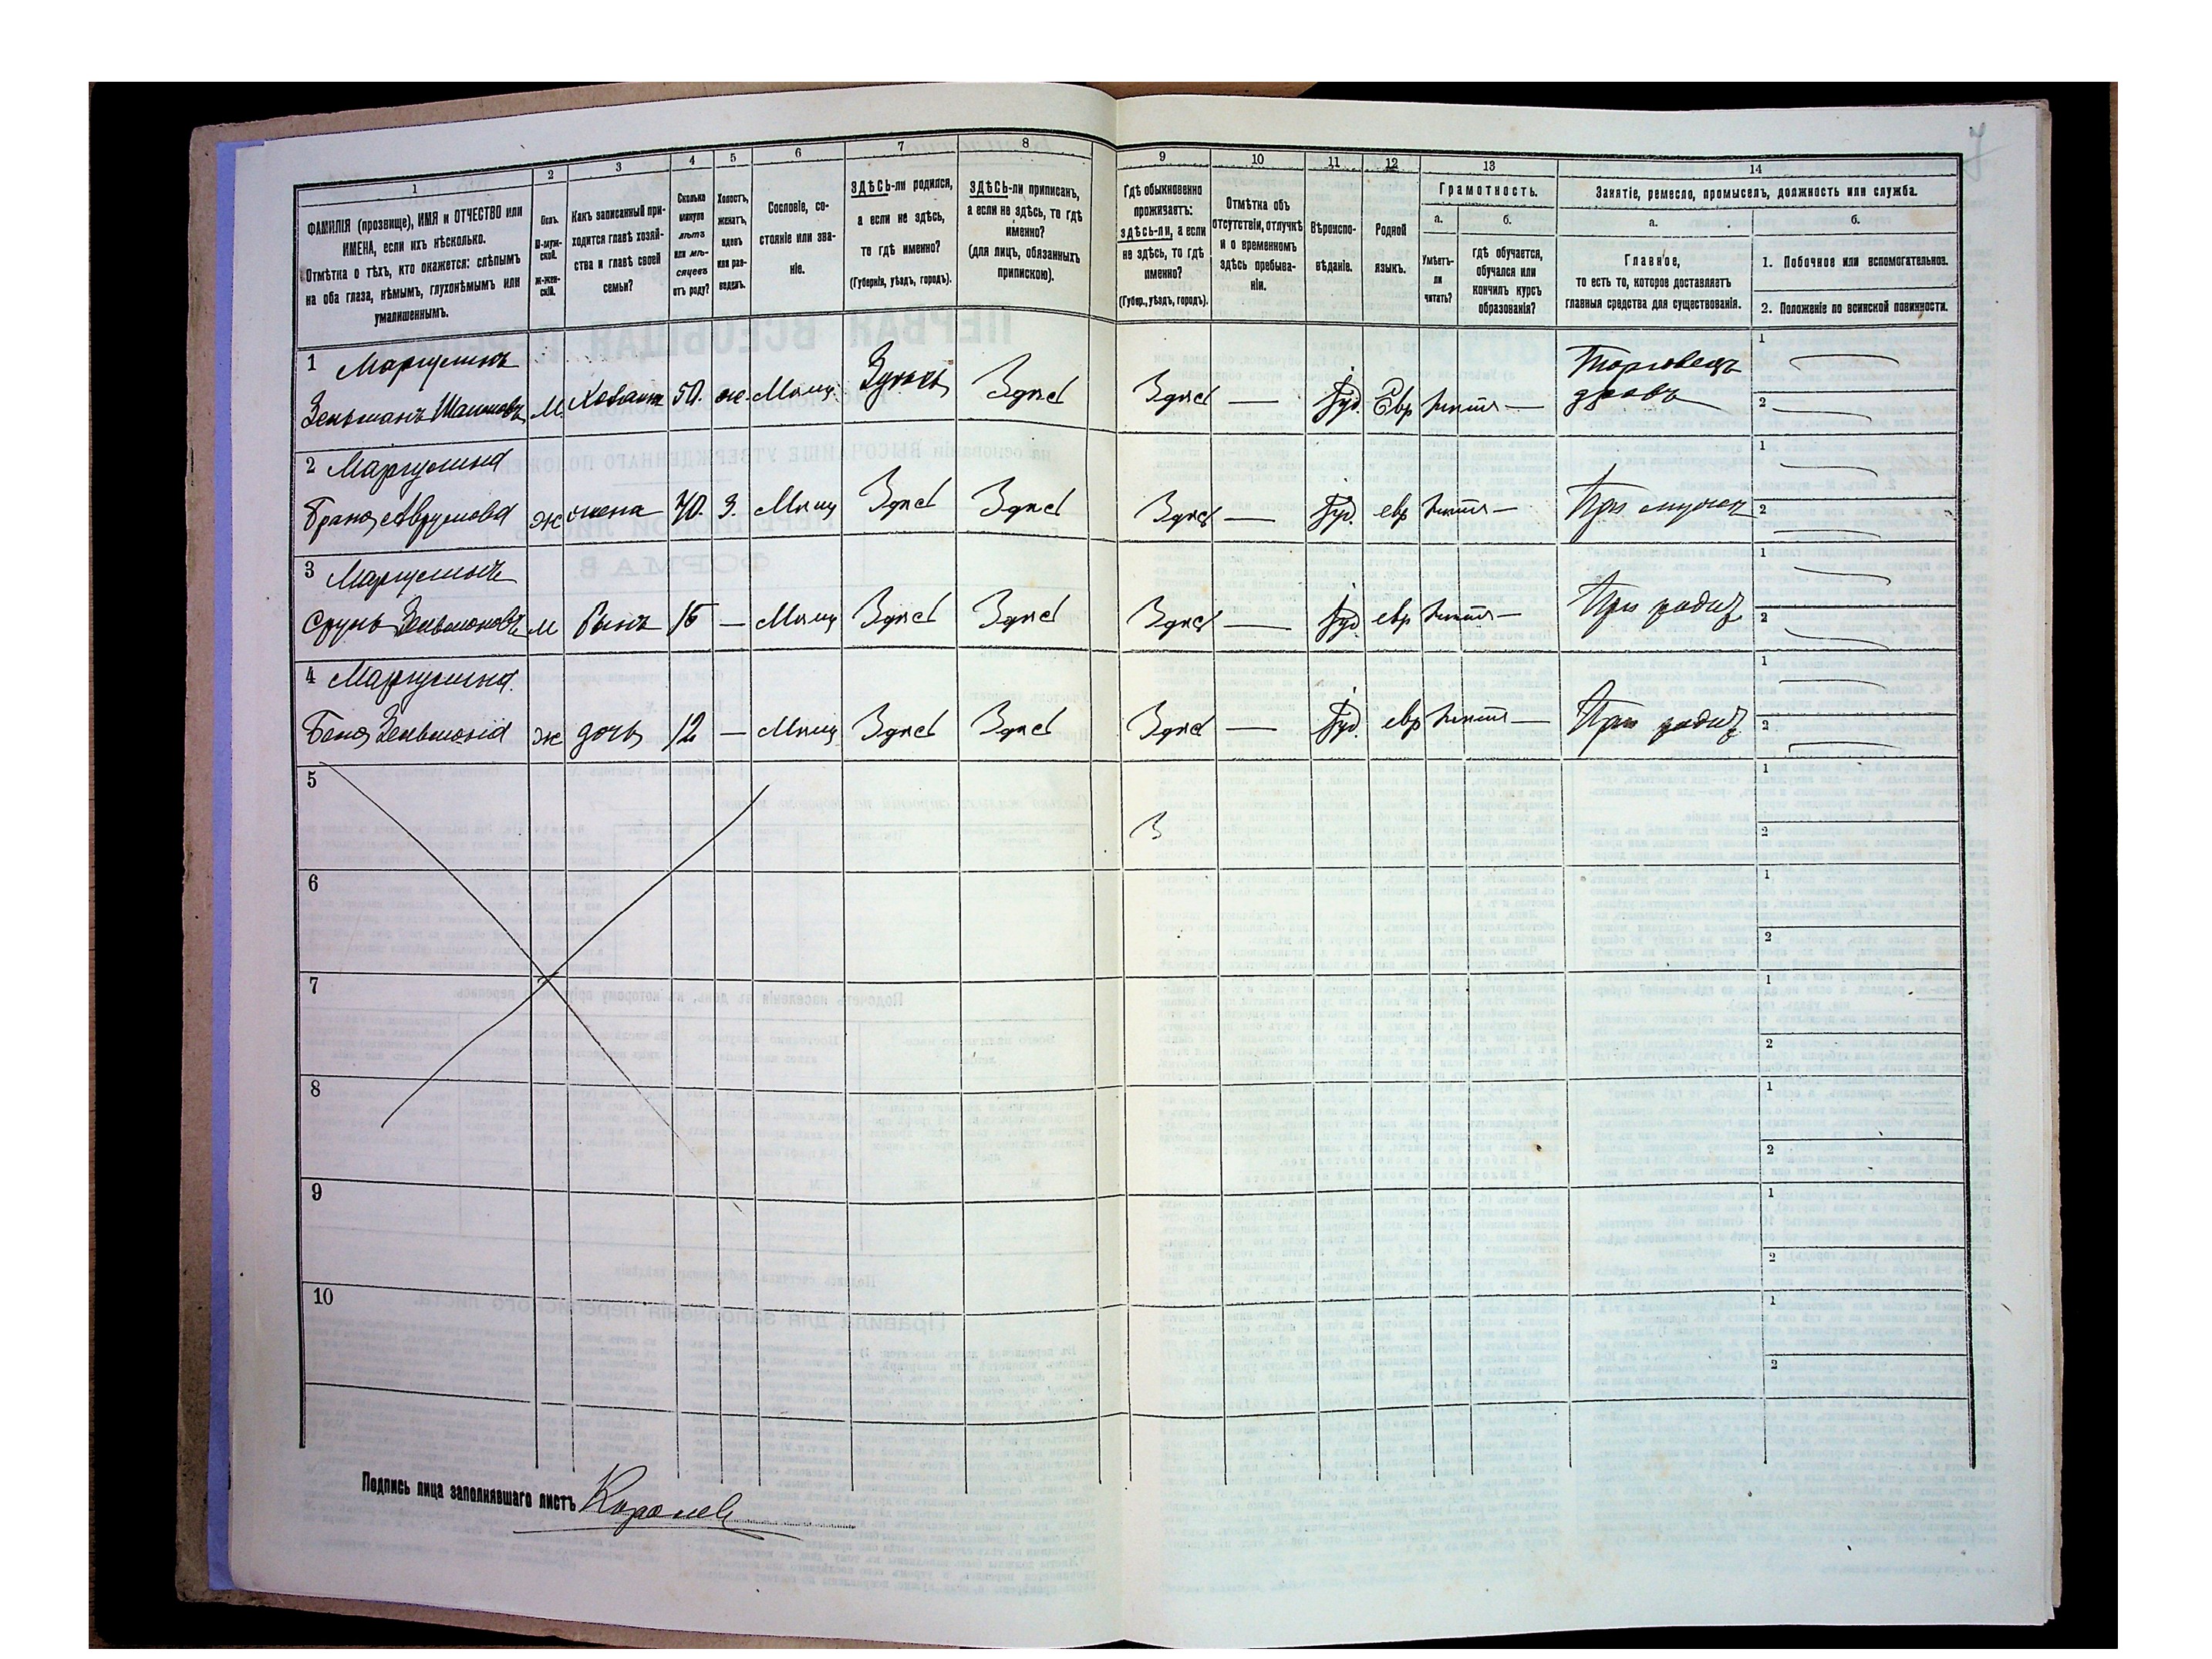 1
2
3
4
5
6
7
8
9
10
11
12
13
14
ФАМИЛІЯ (прозвище), ИМЯ и ОТЧЕСТВО или
ИМЕНА, если ихъ нѣсколько.
Отмѣтка о тѣхъ, кто окажется: слѣпымъ
на оба глаза, нѣмымъ, глухонѣмымъ или
умалишеннымъ.
Полъ.
М-муж-
ской.
Ж-жен-
скій.
Какъ записанный при-
ходится главѣ хозяй-
ства и главѣ своей
семьи?
Сколько
минуло
лѣтъ
или мѣ-
сяцевъ
отъ роду?
Холостъ,
женатъ,
вдовъ
или раз-
веденъ.
Сословіе, со-
стояніе или зва-
ніе.
ЗДѢСЬ-ли родился,
а если не здѣсь,
то гдѣ именно?
(Губернія, уѣздъ, городъ).
ЗДѢСЬ-ли приписанъ,
а если не здѣсь, то гдѣ
именно?
(для лицъ, обязанныхъ
припискою).
Гдѣ обыкновенно
проживаетъ:
здѣсь-ли, а если
не здѣсь, то гдѣ
именно?
(Губер., уѣздъ, городъ).
Отмѣтка объ
отсутствіи, отлучкѣ
и о временномъ
здѣсь пребыва-
ніи.
Вѣроиспо-
вѣданіе.
Родной
языкъ.
Грамотность.
а.
б.
Умѣетъ-
ли
читать?
гдѣ обучается,
обучался или
кончилъ курсъ
образованія?
Занятіе, ремесло, промыселъ, должность или служба.
а.
б.
Главное,
то есть то, которое доставляетъ
главныя средства для существованія.
1. Побочное или вспомогательное.
2. Положеніе по воинской повинности.
1 Маргулисъ
Зельманъ М. Хозяинъ 50. ж. Мѣщ Здѣсь Здѣсь Здѣсь — Іуд. Евр нѣтъ — Торговецъ
дровъ
1
2
2 Маргулина
Абрумова ж жена 40. З. Мѣщ Здѣсь Здѣсь Здѣсь — Іуд. евр нѣтъ — При мужѣ
1
2
3 Маргулисъ
Сруль Зельмановъ М Сынъ 15 — Мѣщ Здѣсь Здѣсь Здѣсь — Іуд евр нѣтъ — При родит
1
2
4 Маргулина.
ж дочь 12 — Мѣщ Здѣсь Здѣсь Здѣсь — Іуд. евр нѣтъ — При родит
1
2
5
З
1
2
6
1
2
7
1
2
8
1
2
9
1
2
10
1
2
Подпись лица заполнявшаго листъ